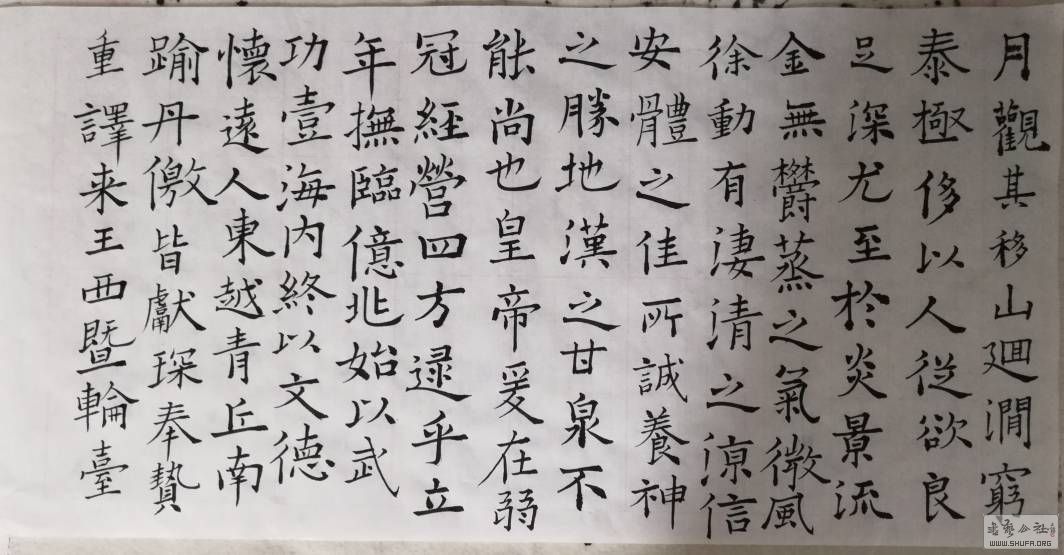 月觀其移山廻澗窮
泰極侈以人從欲良
足深尤至於炎景流
金無欝蒸之氣微風
徐動有淒清之涼信
安體之佳所誠養神
之勝地漢之甘泉不
能尚也皇帝爰在弱
冠經營四方逮乎立
年撫臨億兆始以武
功壹海内終以文德
懷遠人東越青丘南
踰丹徼皆獻琛奉贄
重譯来王西暨輪臺
WWW.SHUFA.ORG